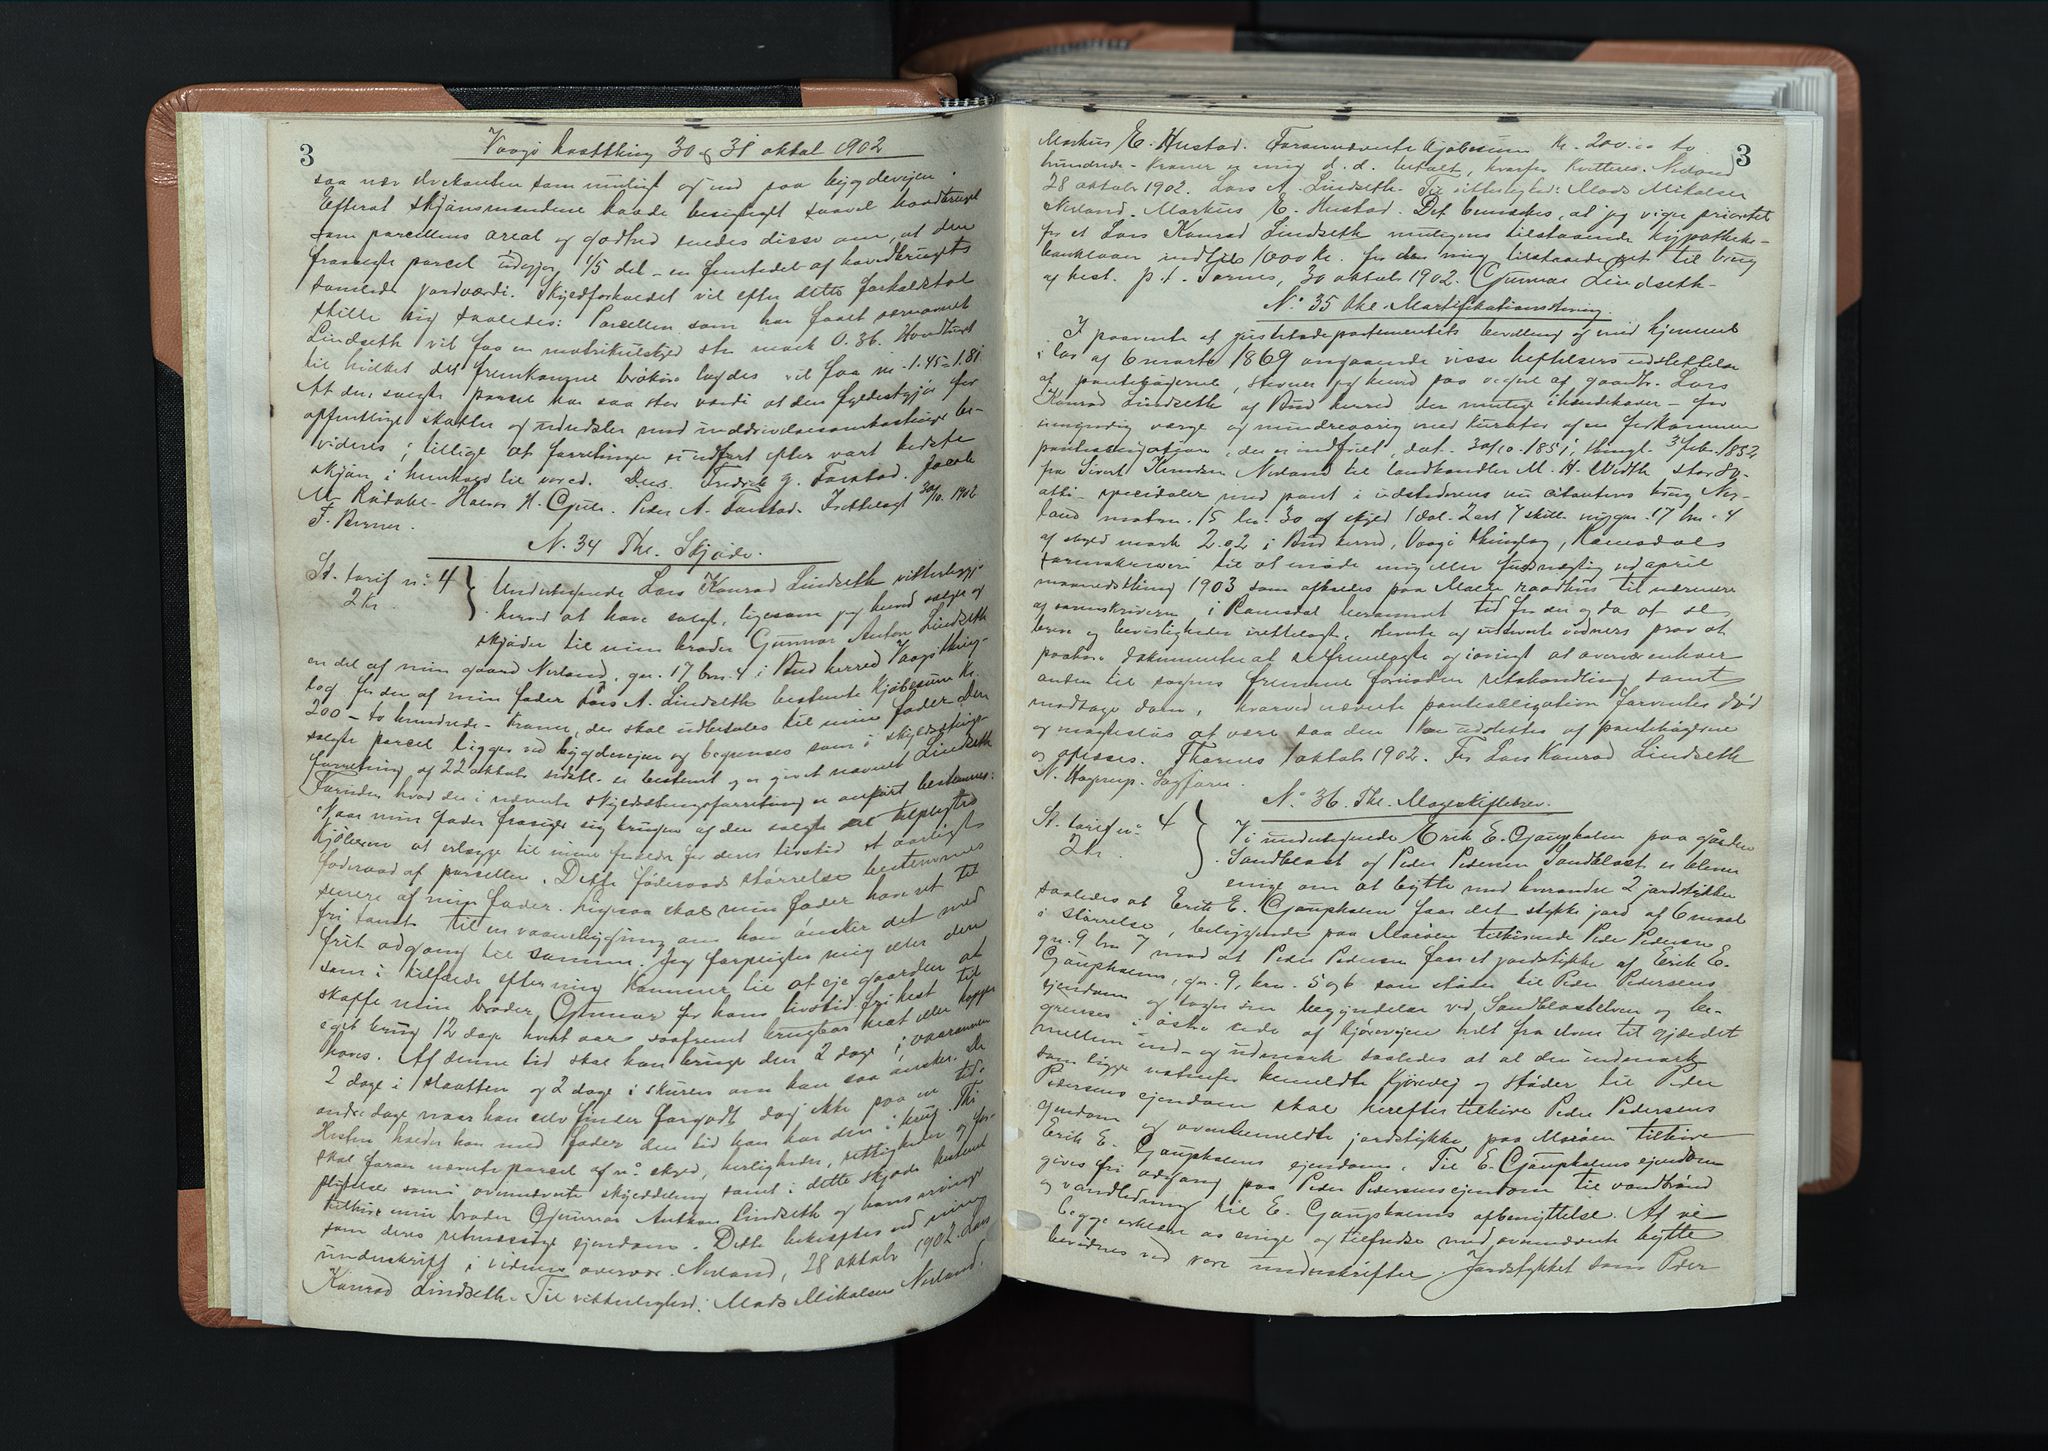 3
Vaagø høstthing 30 & 31 oktob 1902
saa nær elvekanten som muligt og ned paa bygdeveien.
Efterat skjønsmændene havde besigtiget saavel hovedbruget
som parcellens areal og godhed enedes disse om, at den
frasolgte parcel udgjør 1/5 del - en femtedel af hovedbrugets
samlede jordværdi. Skyldforholdet vil efter dette forholdstal
stille sig saaledes: Parcellen som har faaet navnet
Lindseth vil faa en matrikulskyld stor mark 0.36. Hovedbruget
til hvilket det fremkomne brøkøre lægges vil faa m. 1.45 = 1.81
At den solgte parcel har saa stor værdi at den fyldestgjør for
offentlige skatter og udredsler med inddrivelsesomkostninger be-
vidnes; tillige at forretningen er udført efter vort bedste
skjøn i henhold til vor ed. Fredrik G. Farstad. Jacob
M. Rødahl. Hans H. Gule. Peder A. Farstad. Fremlagt 30/10 1902
F. Berner.
N. 34 Thl. Skjøde.
St. tarif n: 4
2 Kr.
Undertegnede Lars Konrad Lindseth vitterliggjør
herved at have solgt, ligesom jeg herved sælger og
skjøder til min broder Gunnar Anton Lindseth
en del af min gaard Nerland, gn. 17 brn. 4 i Bud herred Vaagø thing-
lag for den af min fader Lars A. Lindseth bestemte kjøbesum Kr.
200 - to hundrede - kroner, der skal udbetales til min fader. Den
solgte parcel ligger ved bygdeveien og begrenses som i skyldsætnings-
forretning af 22 oktob. sidstl. er bestemt og er givet navnet Lindseth
Foruden hvad der i nævnte skyldsætningsforretning er anført bestemmes:
Naar min fader frasiger sig brugen af den solgte del tilpligtes
kjøberen at erlægge til mine forældre for deres livstid et aarligt
føderaad af parcellen. Dette føderaads størrelse bestemmes
senere af min fader. Ligesaa skal min fader have ret til
fri tomt til en vaaningsbygning om han ønsker det med
frit adgang til samme. Jeg forpligter mig eller den
som i tilfælde efter mig kommer til at eje gaarden at
skaffe min broder Gunnar for hans livstid fri hest til
eget brug 12 dage hvert aar saafremt brugbar hest eller hoppe
haves. Af denne tid skal han bruge den 2 dage i vaaraannen
2 dage i slaatten og 2 dage i skuren om han saa ønsker. De
andre dage naar han selv finder for godt dog ikke paa en tid.
Hesten holder han med foder den tid han har den i brug. Thi
skal foran nævnte parcel af n: skyld, herligheder, rettigheder og for-
pligtelser som i ovennævnte skylddeling samt i dette skjøde bestemt
tilhøre min broder Gunnar Anton Lindseth og hans arvinger
som deres retmæssige ejendom. Dette bekræftes ved min
underskrift i vidners overvær. Nerland, 28 oktob 1902. Lars
Konrad Lindseth. Til vitterlighed: Mads Mikalsen Nerland.
3
Markus E. Hustad. Forannævnte kjøbesum Kr. 200.00 to
hundrede kroner er mig d. d. betalt, hvorfor kvitteres. Nerland
28 oktob 1902. Lars A. Lindseth. Til vitterlighed: Mads Mikalsen
Nerland. Markus E. Hustad. Det bemærkes, at jeg viger prioritet
for et Lars Konrad Lindseth muligens tilstaaende hypothek-
banklaan indtil 1000 kr. for den mig tilstaaede ret til brug
af hest. p. t. Tornes, 30 oktob. 1902. Gunnar Lindseth.
N. 35 thl. Mortifikationsstevning.
I paavente af justitsdepartementets bevilling og med hjemmel
i lov af 6 marts 1869 angaaende visse heftelsers udslettelse
af pantebøgerne, stevner jeg herved paa vegne af gaardbr. Lars
Konrad Lindseth af Bud herred den mulige ihændehaver - for
umyndig værge og mindreaarig med kurator af en forkommen
panteobligation, der er indfriet, dat. 30/10 1851, thingl. 3 febr. 1852
fra Sivert Knudsen Nerland til landhandler M. H. Width stor 80
otti - specidaler med pant i udstederens nu citantens brug Ner-
land matrn. 15 ln: 30 af skyld 1 dal. 2 ort 7 skill. ny gn. 17 brn. 4
af skyld mark 2.02 i Bud herred, Vaagø thinglag, Romsdals
sorenskriveri til at møde mig eller fuldmægtig ved april
maanedsthing 1903 som afholdes paa Molde raadhus til nærmere
af sorenskriveren i Romsdal berammet tid for der og da at se
breve og bevisligheder irettelagt, stevnte og ustevnte vidners prov at
paahøre dokumenter at selv fremlægge og iøvrigt at overvære enhver
anden til sagens fremme fornøden retshandling samt
modtage dom, hvorved nævnte panteobligation forventes død
og magtesløs at være saa den kan udslettes af pantebøgerne
og aflyses. Thornes 1 oktob 1902. For Lars Konrad Lindseth
N. Hagerup. Sagfører.
N. 36. Thl. Mageskiftebrev.
St. tarif n: 4
2 kr.
Vi undertegnede Erik E. Gaupholm paa gården
Sandblaast og Peder Pedersen Sandblaast er bleven
enige om at bytte med hverandre 2 jordstykker
saaledes at Erik E. Gaupholm faar det stykke jord af 6 maal
i størrelse, beliggende paa Moraen tilhørende Peder Pedersen
gn. 9 bn 7 mod at Peder Pedersen faar et jordstykke af Erik E.
Gaupholms, gn. 9, brn. 5 og 6 som støder til Peder Pedersens
ejendom og tager sin begyndelse ved Sandblaastelven og be-
grenses i østre side af kjøreveien helt fra elven til gjærdet
mellem ind- og udmark saaledes at al den indmark
som ligger nedenfor bemeldte kjørevej og støder til Peder
Pedersens ejendom skal herefter tilhøre Peder Pedersens
ejendom og ovenbemeldte jordstykke paa Moraen tilhøre
Erik E. Gaupholms ejendom. Til E. Gaupholms ejendom
gives fri adgang paa Peder Pedersens ejendom til vandbrønd
og vandledning til E. Gaupholms afbenyttelse. At vi
begge erklærer os enige og tilfredse med ovennævnte bytte
bevidnes ved vore underskrifter. Jordstykket som Peder